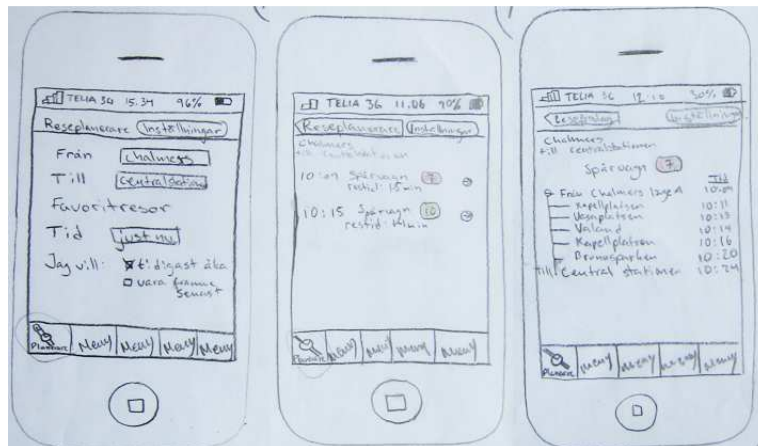 TELIA 3G 15.34 96%
Reseplanerare Inställningar
Från chalmers
Till centralstation
Favoritresor
Tid just nu
Jag vill: tidigast åka
vara framme
senast
Planerare Meny Meny Meny Meny
TELIA 3G 11.06 90%
Reseplanerare Inställningar
Chalmers
till centralstationen
10:09 Spårvagn 7
restid: 15 min
10:15 Spårvagn 10
restid: min
Planerare Meny Meny Meny Meny
TELIA 3G 12.10 30%
Inställningar
Chalmers
till centralstationen
Spårvagn 7
Tid
Från Chalmers läge A 10.09
Kapellplatsen 10:11
Vasaplatsen 10:13
Valand 10:14
Kapellplatsen 10:16
Brunnsparken 10:20
Till Central stationen 10:24
Planerare Meny Meny Meny Meny